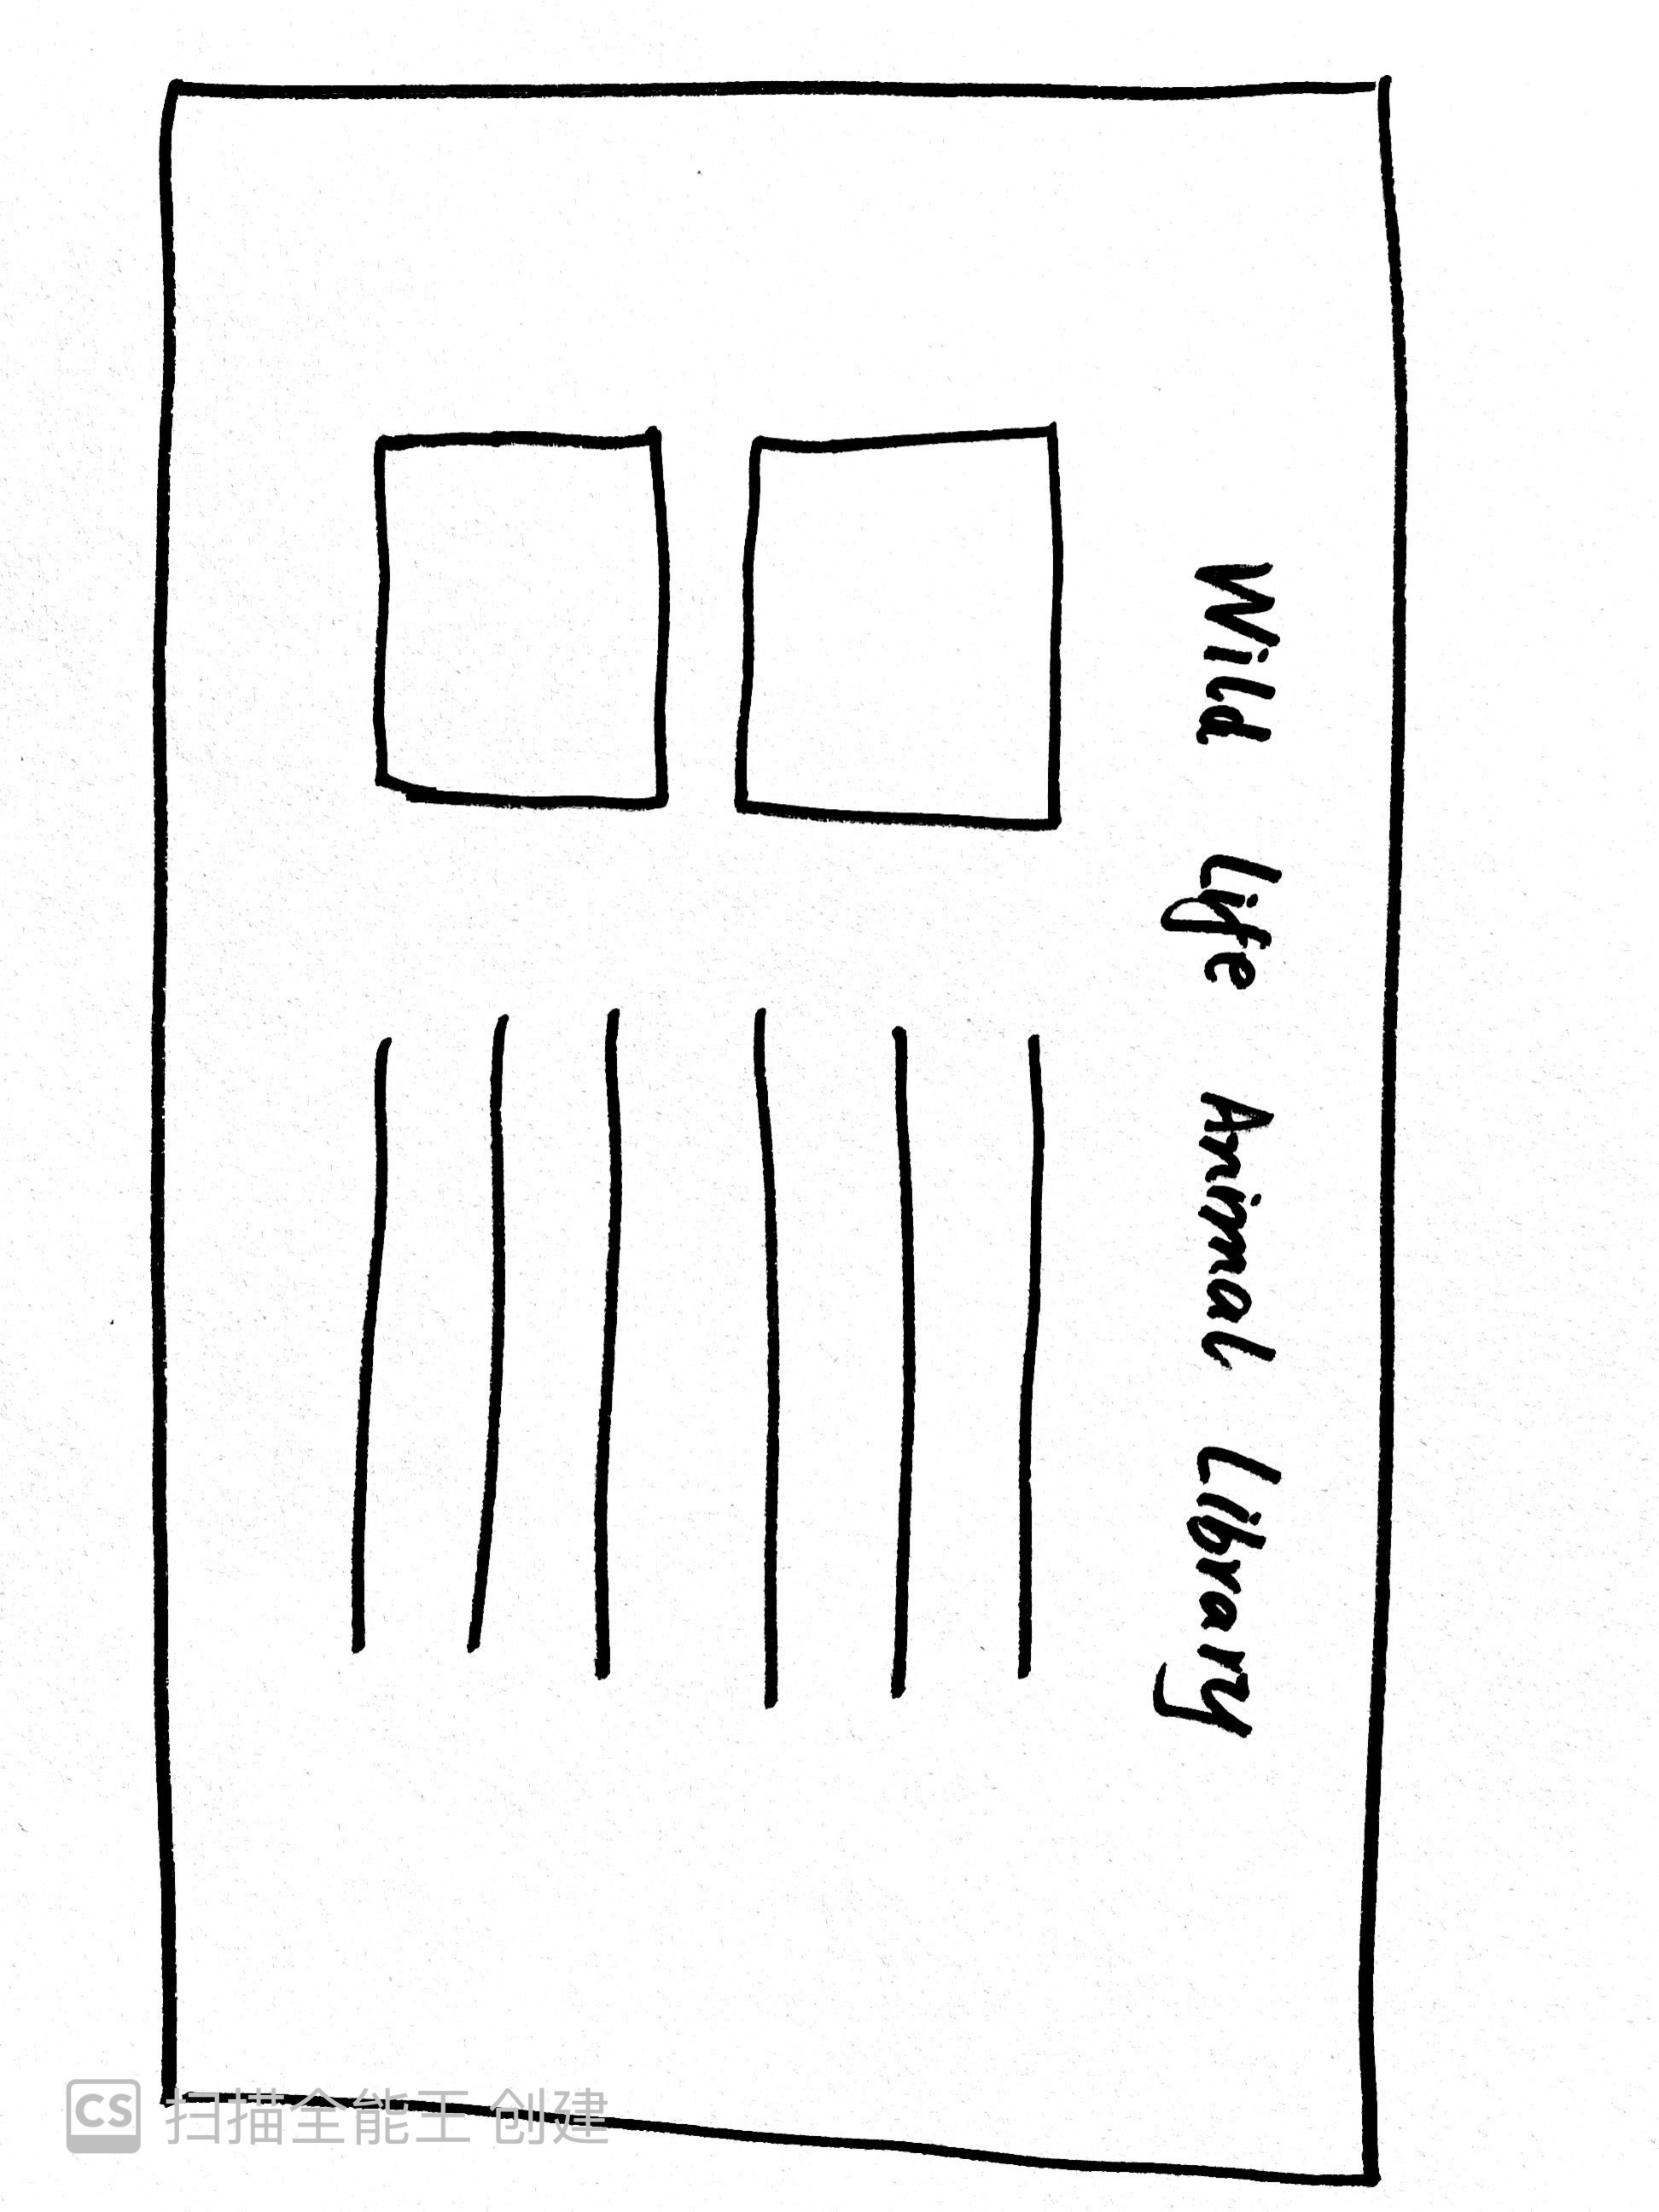 Wild Life Animal Library
CS 扫描全能王 创建